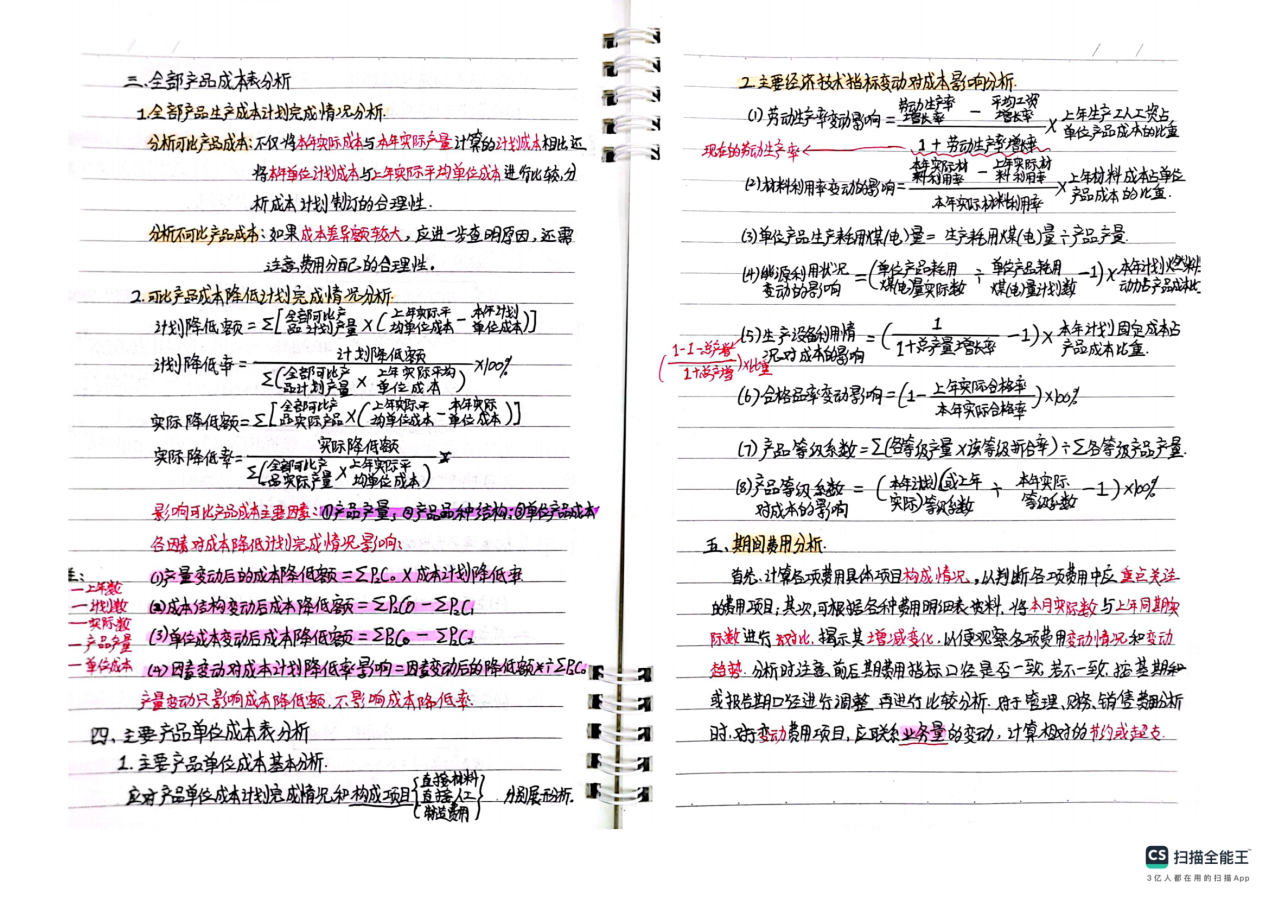 三、全部产品成本表分析
1.全部产品生产成本计划完成情况分析.
分析可比产品成本:不仅将本年实际成本与本年实际产量计算的计划成本相比,还
将本年单位计划成本与上年实际平均单位成本进行比较,分
析成本计划制订的合理性.
分析不可比产品成本:如果成本差异额较大,应进一步查明原因,还需
注意费用分配的合理性。
2.可比产品成本降低计划完成情况分析.
计划降低额=Σ[全部可比产品计划产量×(上年实际平均单位成本-本年计划单位成本)]
计划降低率=计划降低额/Σ(全部可比产品计划产量×上年实际平均单位成本)×100%
实际降低额=Σ[全部可比产品实际产品×(上年实际平均单位成本-本年实际单位成本)]
实际降低率=实际降低额/Σ(全部可比产品实际产量×上年实际平均单位成本)
影响可比产品成本主要因素:①产品产量;②产品品种结构;③单位产品成本
各因素对成本降低计划完成情况影响:
一上年数
一计划数
一实际数
一产品产量
一单位成本
(1)产量变动后的成本降低额=ΣP₂C₀×成本计划降低率
(2)成本结构变动后成本降低额=ΣP₂C₀-ΣP₂C₁
(3)单位成本变动后成本降低额=ΣP₂C₀-ΣP₂C₂
(4)因素变动对成本计划降低率影响=因素变动后的降低额÷ΣP₂C₀
产量变动只影响成本降低额,不影响成本降低率.
四、主要产品单位成本表分析
1.主要产品单位成本基本分析.
应对产品单位成本计划完成情况和构成项目{直接材料 直接人工 制造费用}分别展开分析.
2.主要经济技术指标变动对成本影响分析.
(1)劳动生产率变动影响=(劳动生产率增长率-平均工资增长率)/(1+劳动生产率增长率)×上年生产工人工资占单位产品成本的比重
现在的劳动生产率
(2)材料利用率变动的影响=(本年实际材料利用率-上年实际材料利用率)/本年实际材料利用率×上年材料成本占单位产品成本的比重.
(3)单位产品生产耗用煤(电)量=生产耗用煤(电)量÷产品产量.
(4)能源利用状况变动的影响=(单位产品耗用煤(电)量实际数÷单位产品耗用煤(电)量计划数-1)×本年计划燃料动力占产品成本比
(5)生产设备利用情况对成本的影响=(1/(1+总产量增长率)-1)×本年计划固定成本占产品成本比重.
(1-1-总产增/1+总产增)×比重
(6)合格品率变动影响=(1-上年实际合格率/本年实际合格率)×100%
(7)产品等级系数=Σ(各等级产量×该等级折合率)÷Σ各等级产品产量.
(8)产品等级系数对成本的影响=(本年计划(或上年实际)等级系数÷本年实际等级系数-1)×100%
五、期间费用分析.
首先,计算各项费用具体项目构成情况,以判断各项费用中应重点关注
的费用项目;其次,可根据各种费用明细表资料,将本月实际数与上年同期实
际数进行对比,揭示其增减变化,以便观察各项费用变动情况和变动
趋势.分析时注意,前后期费用指标口径是否一致,若不一致,按基期
或报告期口径进行调整,再进行比较分析.对于管理、财务、销售费用分析
时,对于变动费用项目,应联系业务量的变动,计算相对的节约或超支.
CS 扫描全能王
3亿人都在用的扫描App